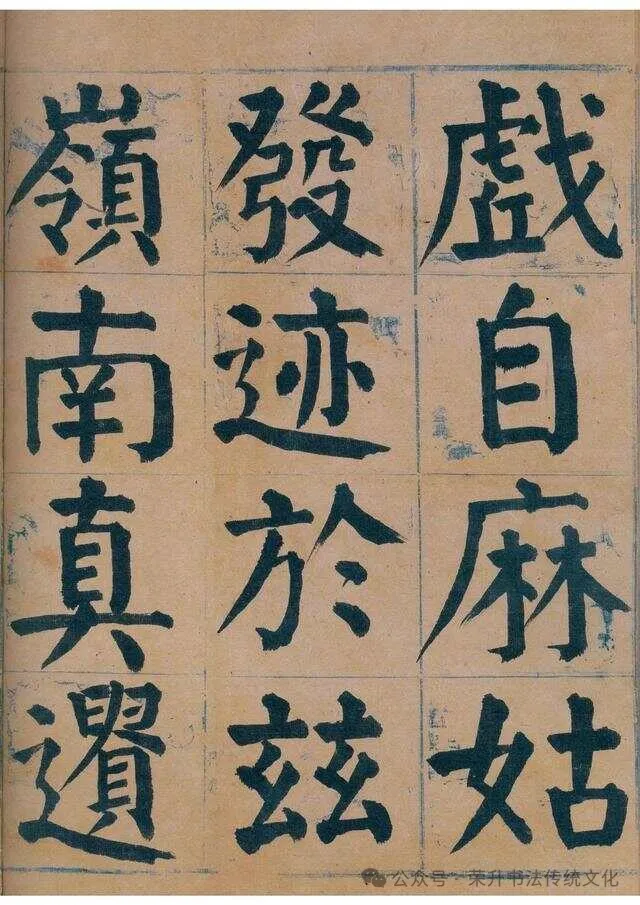 戯自麻姑
發迹於玆
嶺南真遺
公众号 · 荣升书法传统文化